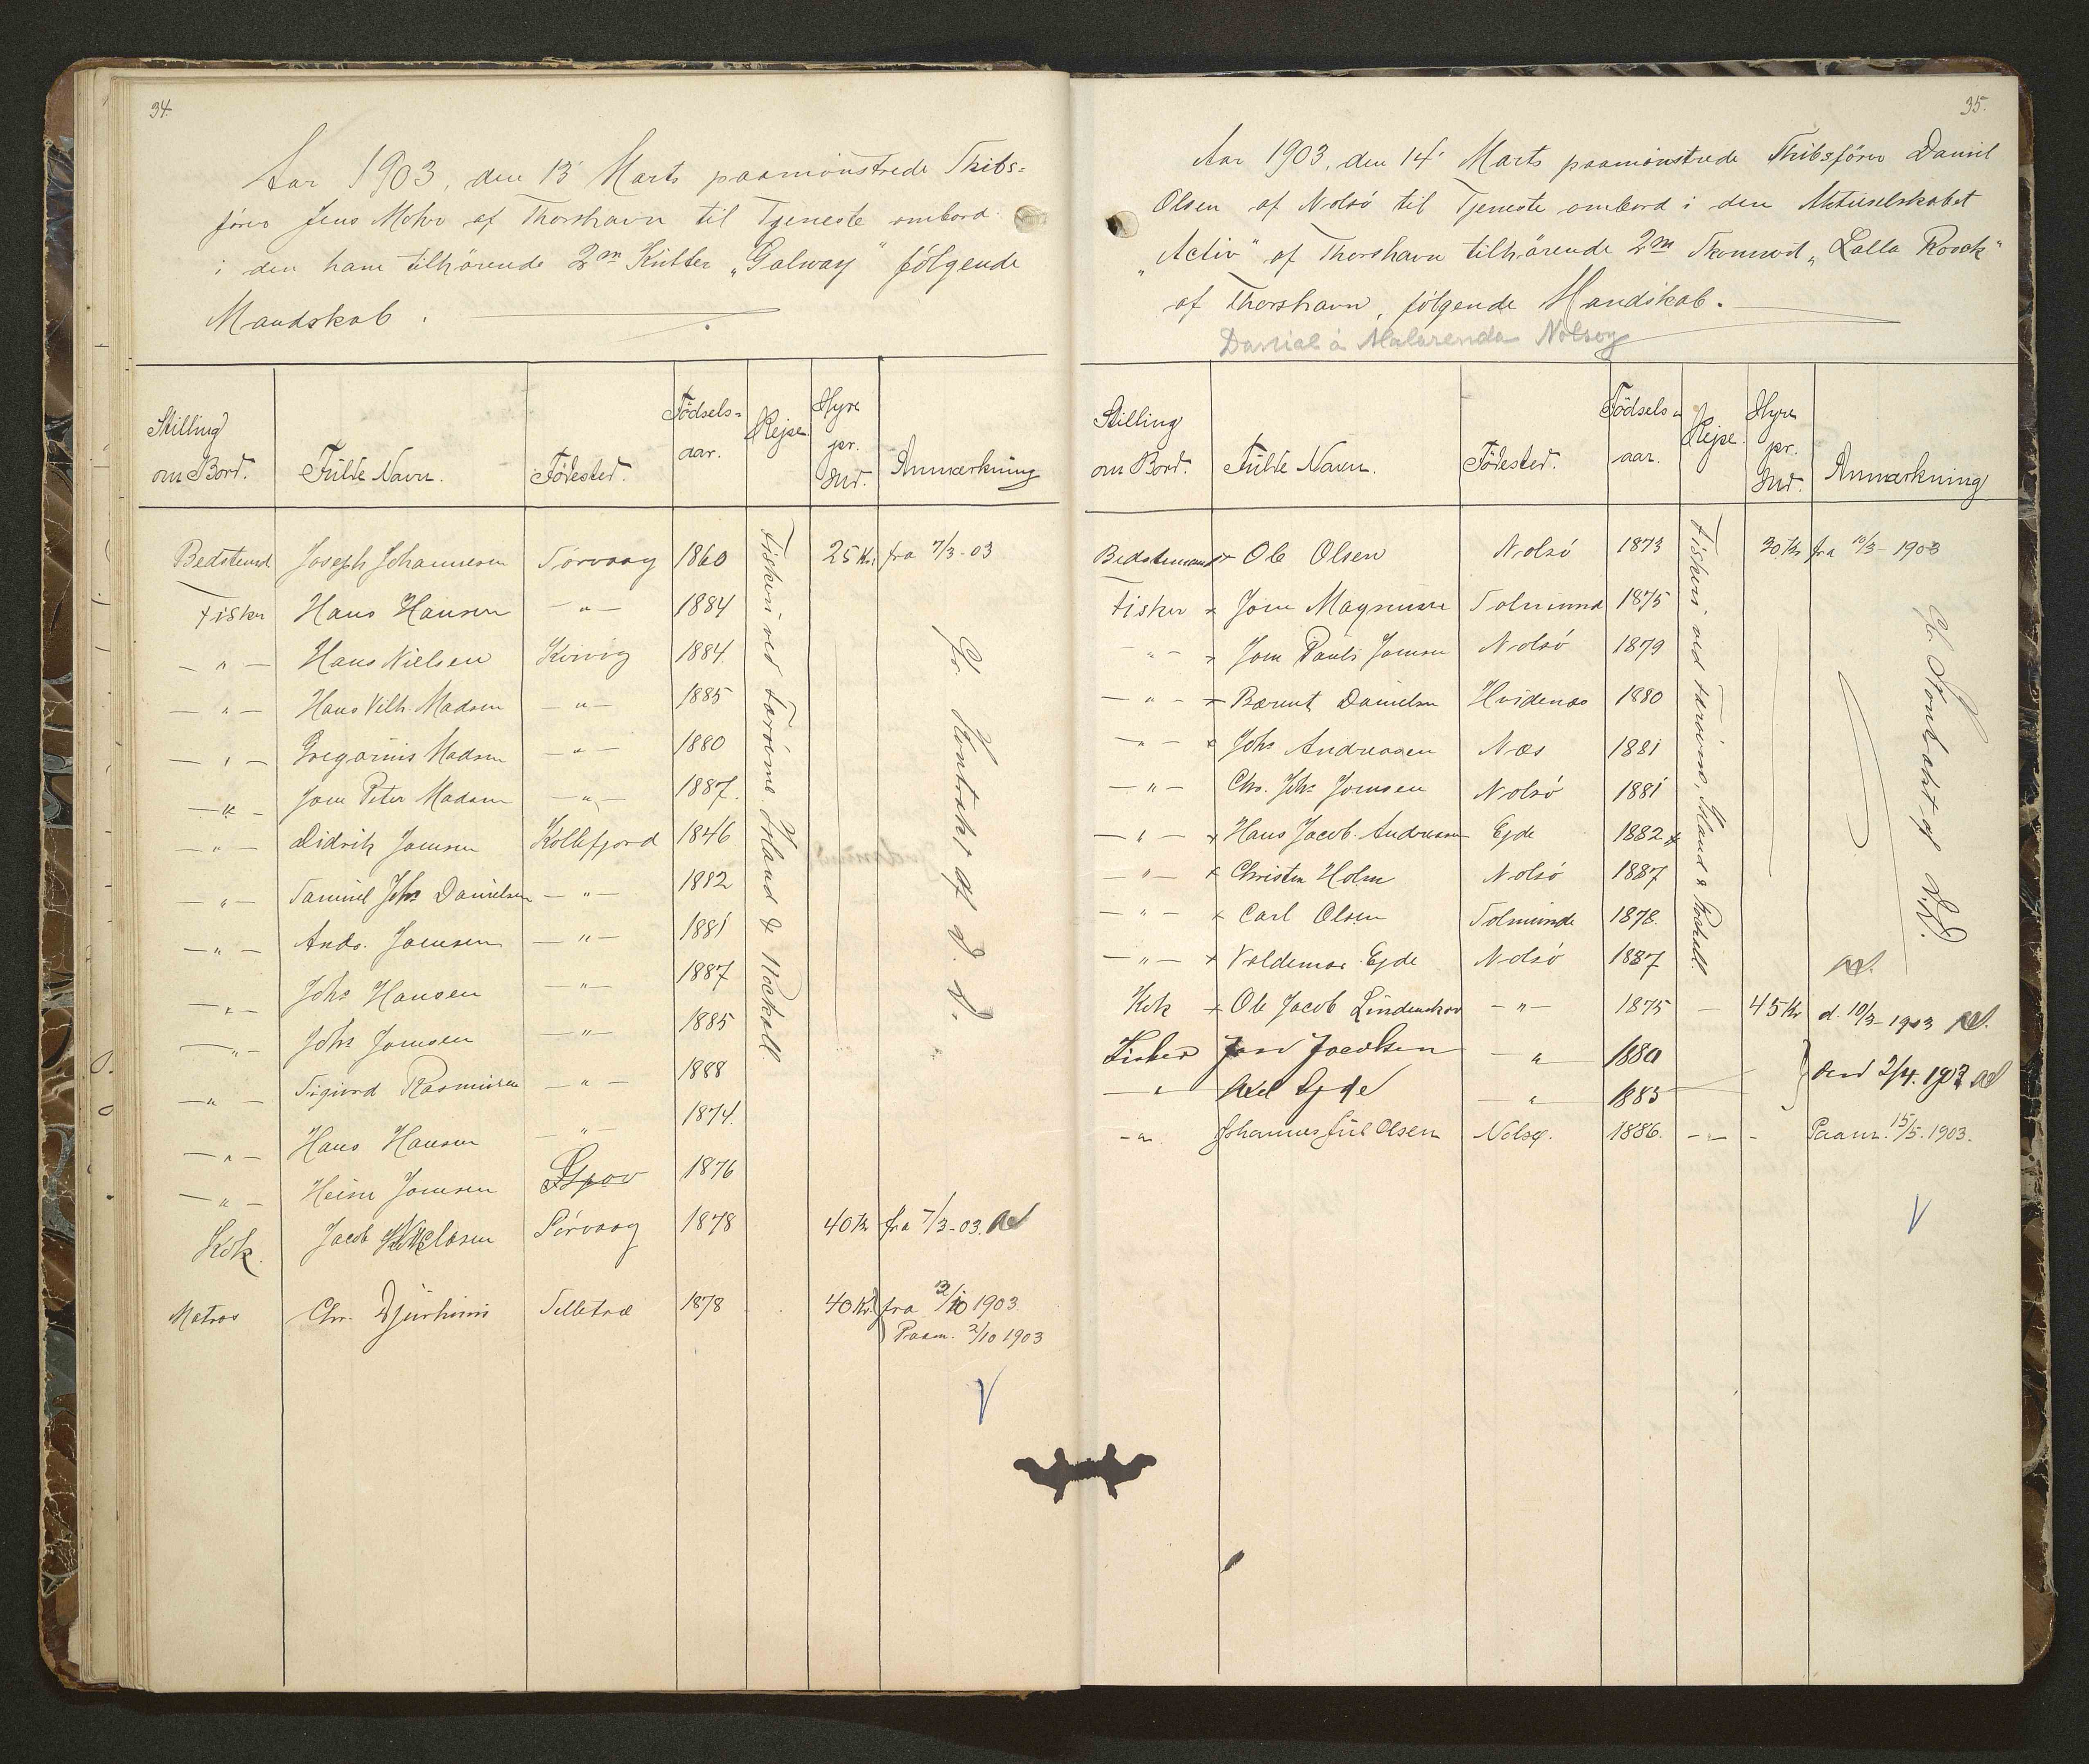 34.
Aar 1903, den 13' Marts paamönstrede Skibs=
förer Jens Mohr af Thorshavn til Tjeneste ombord
i den ham tilhörende 2m Kutter „Galway" fölgende
Mandskab.
Stilling om Bord. Fulde Navn. Födested. Födsels=aar. Rejse Hyre pr. Md. Anmærkning
Bedstemd Joseph Johannesen Sörvaag 1860 25 Kr. fra 7/3-03
Fisker Hans Hansen — " — 1884
— " — Hans Nielsen Kvivig 1884.
— " — Hans Vilh. Madsen — " — 1885
— " — Gregorius Madsen — " — 1880
— " — Joen Peter Madsen — " — 1887.
— " — Didrik Joensen Kollefjord 1846
— " — Samuel Johs Danielsen — " — 1882
— " — Ands. Joensen — " — 1881
— " — Johs Hansen — " — 1887
— " — Johs Joensen — " — 1885
— " — Sigurd Rasmussen — " — 1888
— " — Hans Hansen — " — 1874.
— " — Heine Joensen 1876
Kok. Jacob Sörvaag 1878 40 Kr fra 7/3-03.
Matros Chr. Djurhuus Selletræ 1878 40 Kr. fra /10 1903.
Paam. 2/10 1903
Fiskeri ved Færöerne, Island & Rockall.
Gl. Kontrakt af d. D.
35.
Aar 1903, den 14' Marts paamönstrede Skibsförer Daniel
Olsen af Nolsö til Tjeneste ombord i den Aktieselskabet
„Activ" af Thorshavn tilhörende 2m Skonnert „Lalla Roock"
af Thorshavn, fölgende Mandskab.
Danial á Malarenda Nolsoy
Stilling om Bord. Fulde Navn. Födested. Födsels=aar. Rejse. Hyre pr. Md. Anmærkning
Bedstemand x Ole Olsen Nolsö 1873 30 Kr fra 10/3-1903
Fisker x Joen Magnussen Solmunde 1875
— " — x Joen Pauli Joensen Nolsö 1879
— " — x Berent Danielsen Hvidenæs 1880
— " — x Johs Andreasen Næs 1881
— " — Chr. Johs Joensen Nolsö 1881
— " — x Hans Jacob Andreasen Ejde 1882 x
— " — x Christen Holm Nolsö 1887
— " — x Carl Olsen Solmunde 1878.
— " — x Valdemar Ejde Nolsö 1887
Kok x Ole Jacob Lindenskov — " — 1875 — 45 Kr d. 10/3-1903
Fisker Joen Jacobsen — " — 1880
— " — Axel Ejde — " — 1883 den 2/4. 1903
— " — Johannes Jul Olsen Nolsø. 1886. — " — Paam. 15/5. 1903.
Fiskeri ved Færöerne, Island & Rockall.
Gl. Kontrakt af D.D.